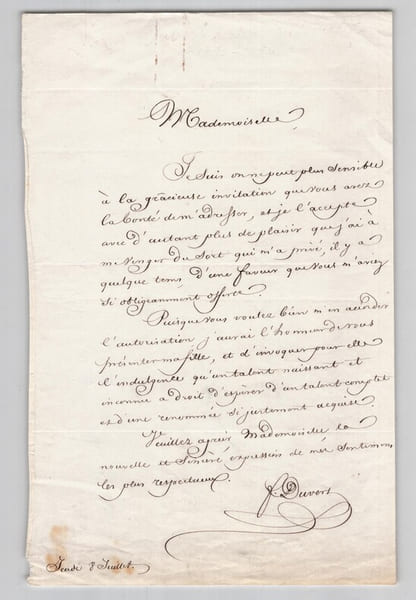 Mademoiselle
Je suis on ne peut plus sensible
à la grâcieuse invitation que vous avez
la bonté de m'adresser, et je l'accepte
avec d'autant plus de plaisir que j'ai à
me venger du Sort qui m'a privé, il y a
quelque tems d'une faveur que vous m'aviez
si obligeamment offerte.
Puisque vous voulez bien m'en accorder
l'autorisation j'aurai l'honneur de vous
présenter ma fille, et d'invoquer pour elle
l'indulgence qu'un talent naissant et
inconnu a droit d'espérer d'un talent complet
et d'une renommée si justement acquise
Veuillez agréer Mademoiselle la
nouvelle et Sincère expression de mes Sentimens
les plus respectueux.
F. Duvert
Jeudi 8 Juillet.